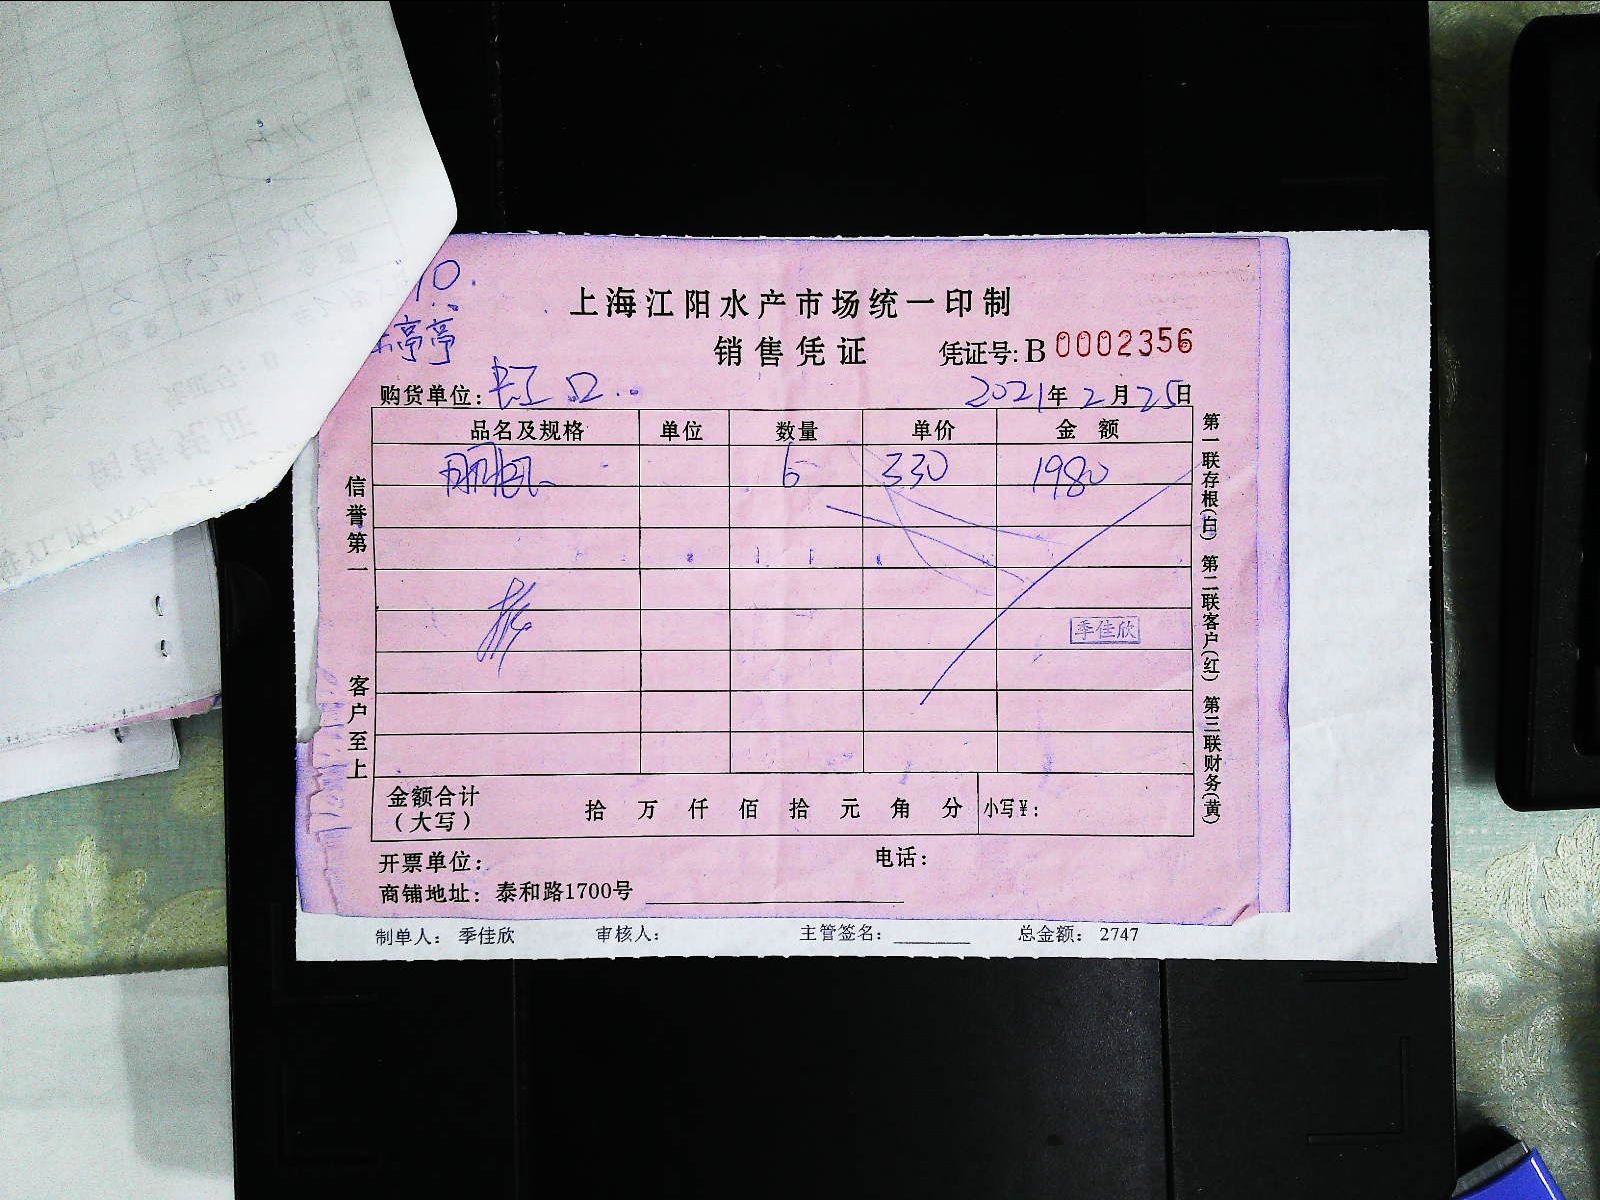 10
亭亭
上海江阳水产市场统一印制
销售凭证
凭证号: B 0002356
购货单位: 虹口
2021年2月25日
品名及规格 单位 数量 单价 金额
6 330 1980
季佳欣
金额合计（大写） 拾 万 仟 佰 拾 元 角 分 小写¥:
开票单位: 电话:
商铺地址: 泰和路1700号
信誉第一 客户至上
第一联存根(白) 第二联客户(红) 第三联财务(黄)
制单人: 季佳欣 审核人: 主管签名: 总金额: 2747